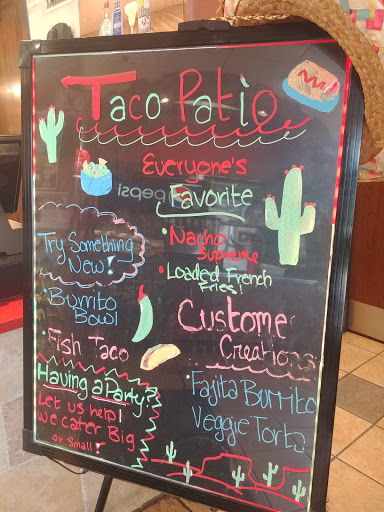 Taco Patio
Everyone's
Favorite
• Nacho
Supreme
• Loaded French
Fries!
Try Something
New!
• Burrito
Bowl
• Fish Taco
Custome
Creations
• Fajita Burrito
Veggie Torta
Having a Party?
Let us help!
We cater Big
or Small!